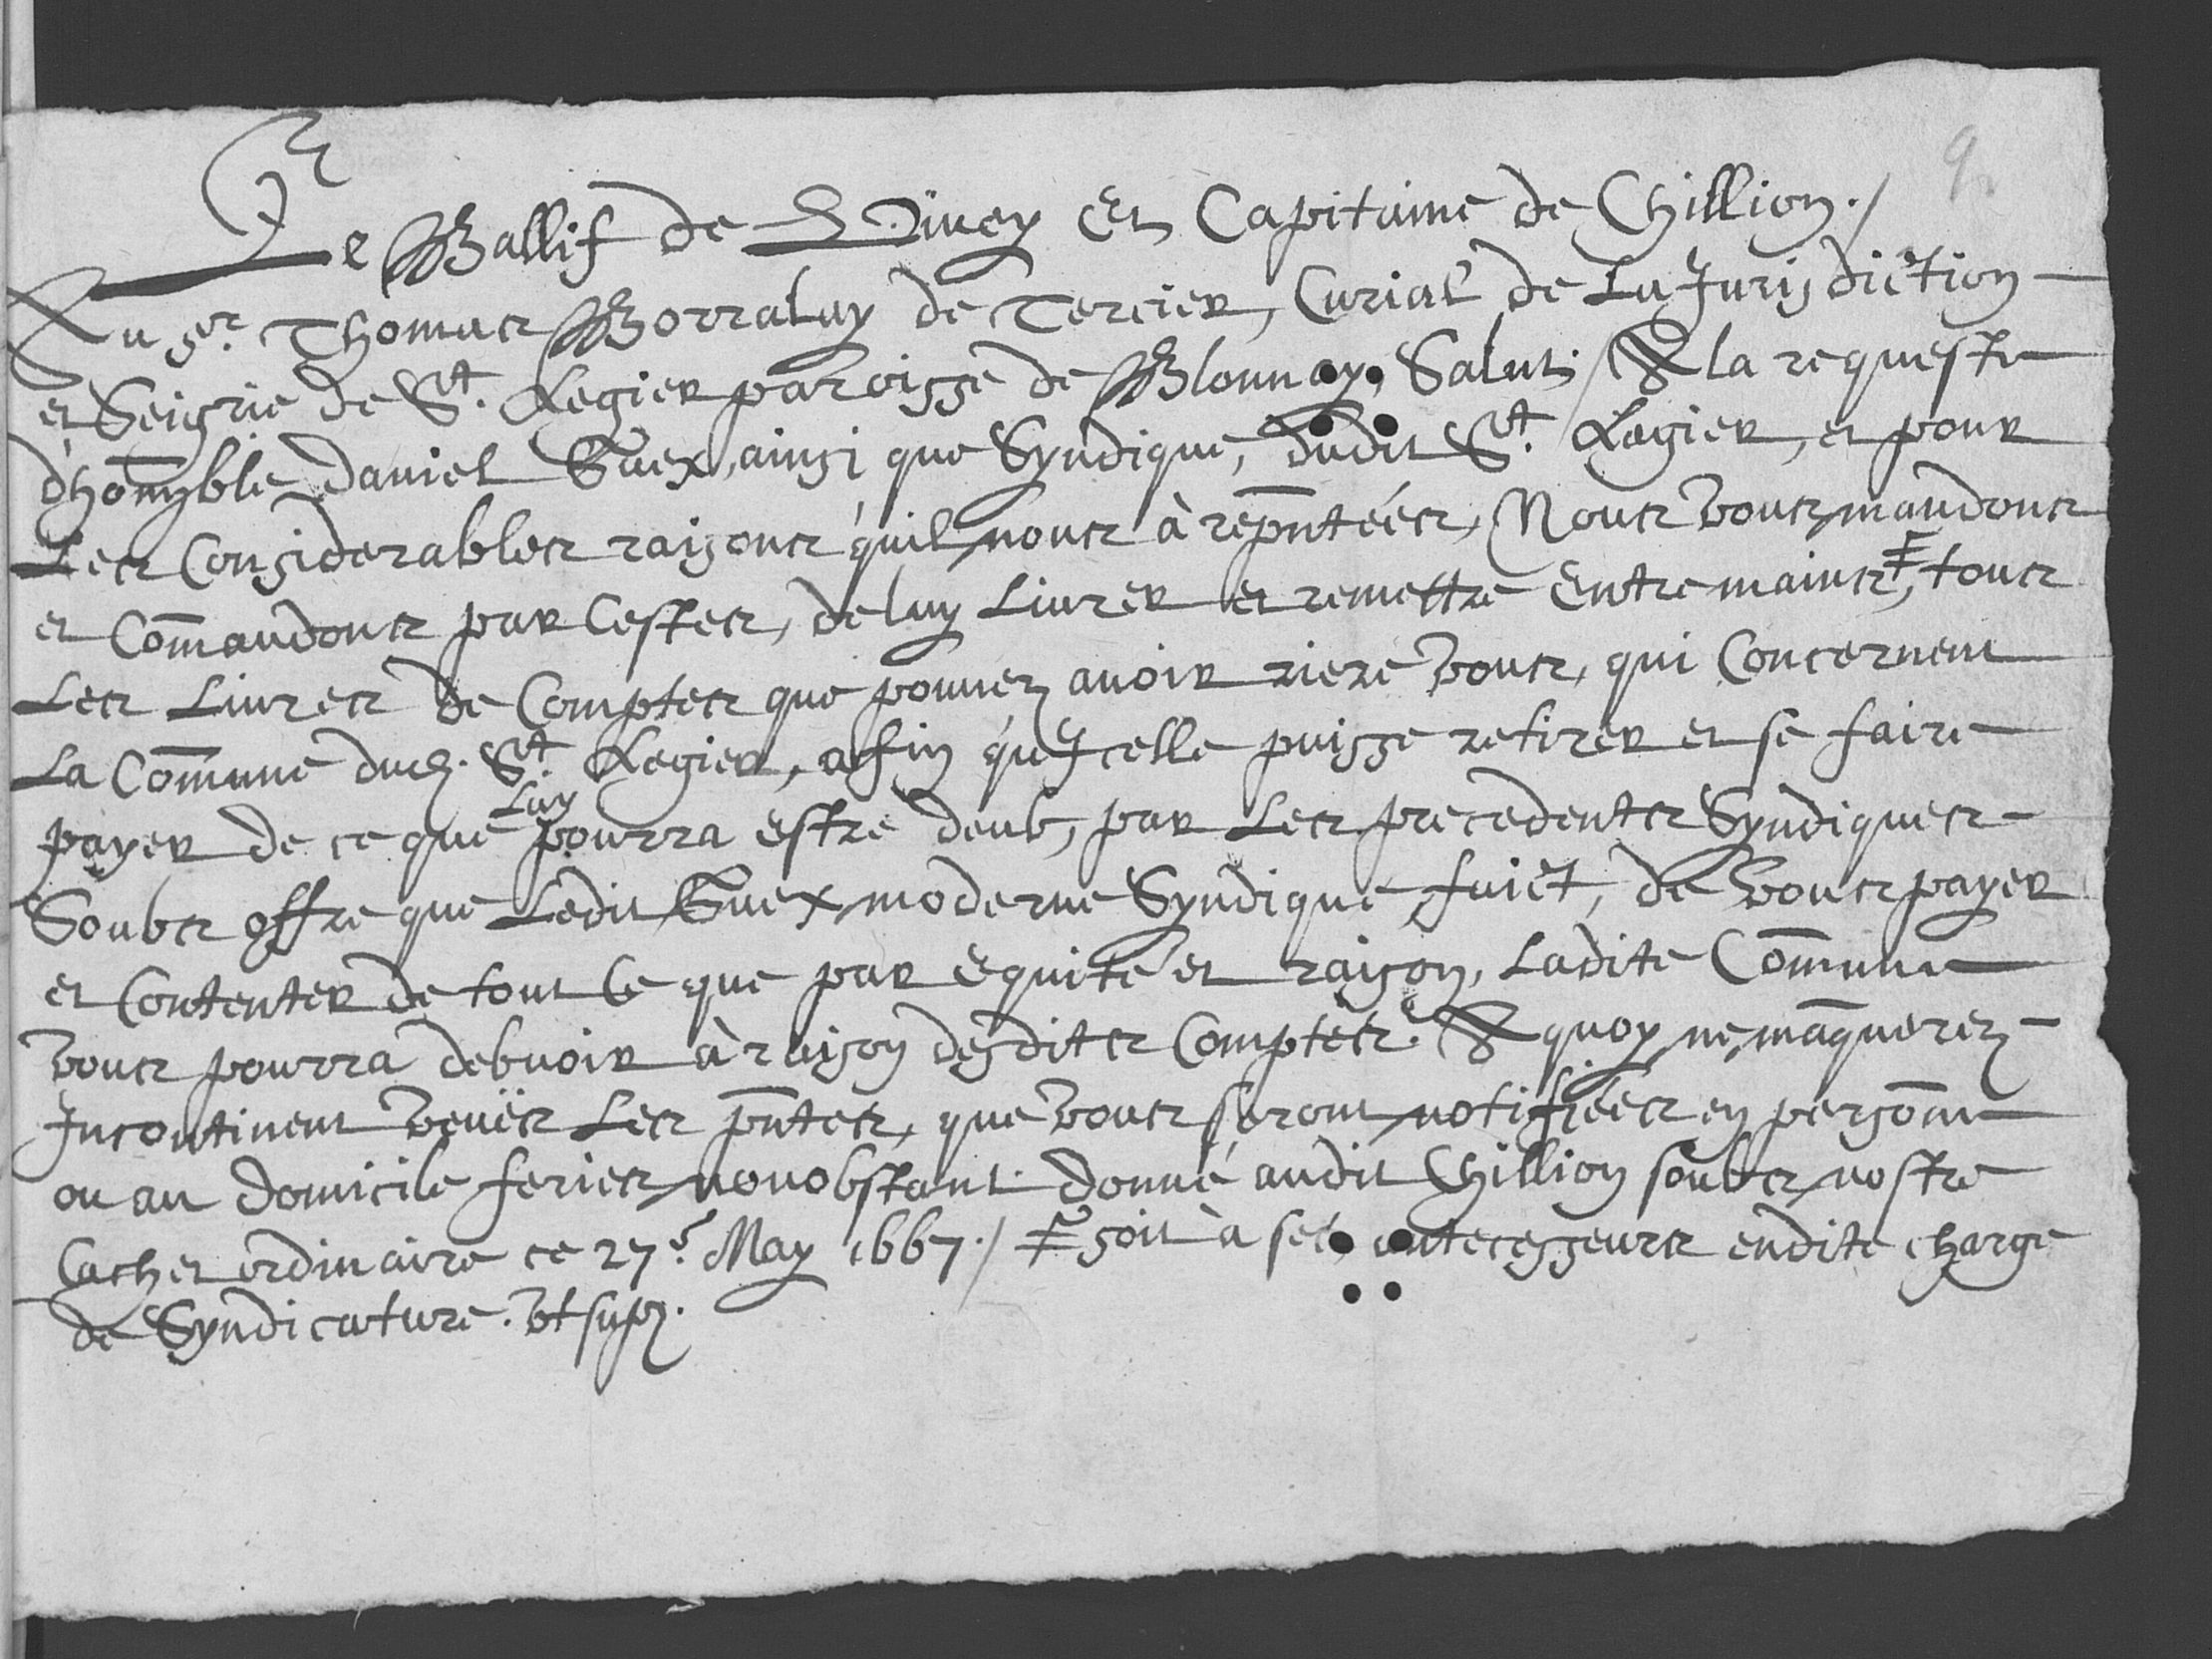 9
Le Ballif de Vivey Et Capitaine de Chillion./
Au Sr. Thomas Borralay de Tercier, Curial de La Jurisdiction
et Seigrie de St. Legier paroisse de Blonnay, Salut / A la requeste
d'honnble Daniel Guex, ainsi que Syndique, dudit St. Legier, et pour
Les Considerables raisons quil nous à repntées, Nous vous mandons
et Commandons par Cestes, de luy Livrer et remettre Entre mains ǂ, tous
Les Livres de Comptes que pouvez avoir riere vous, qui Concernent
La Commune dud. St. Legier, afin qu'Jcelle puisse retirer et se faire
payer de ce que Luy pourra Estre deub, par Les precedents Syndiques
Soubs offre que Ledit Guex moderne Syndique, faict, de vous payer
et Contenter de tout Ce que par Equité et raison, Ladite Commune
vous pourra debvoir à raison desdits Comptes. A quoy ne manquerez
Incontinent veuës Les pntes, que vous seront notifiées en personne
ou au domicile feries nonobstant. Donné audit Chillion soubs nostre
Cachet ordinaire ce 27e. May 1667./ ǂ soit à ses antecesseurs endite charge
de Syndicature. Vt sup.